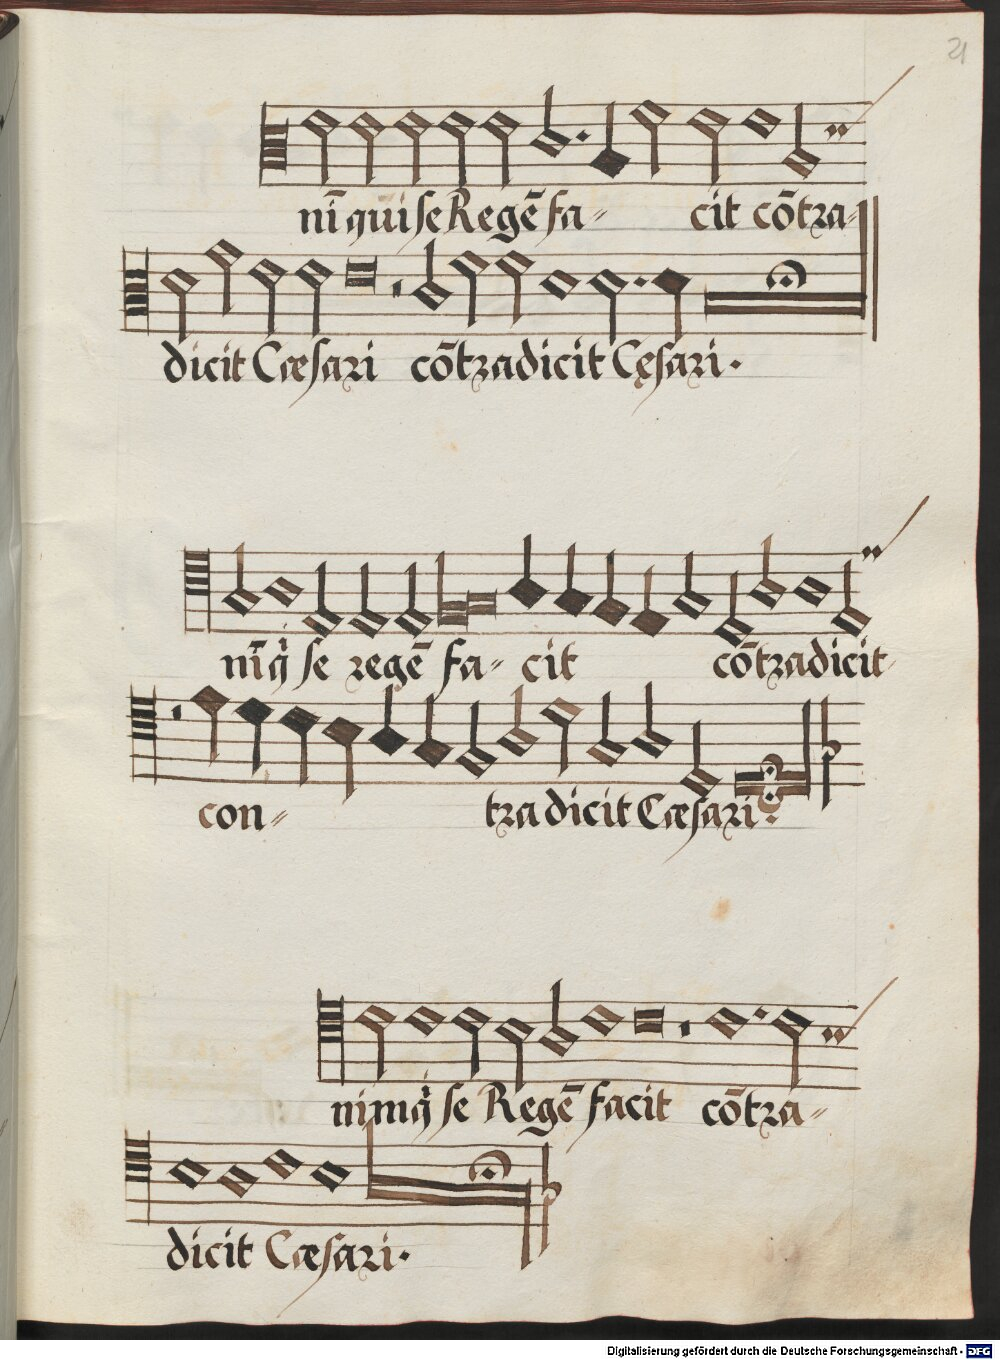 21
nī qui se Regē fa- cit cōtra-
dicit Cæsari cōtradicit Cęsari.
nīq̇ se regē fa- cit cōtradicit-
con- tradicit Cæsari:
nimq̇ se Regē facit cōtra-
dicit Cæsari.
Digitalisierung gefördert durch die Deutsche Forschungsgemeinschaft - DFG